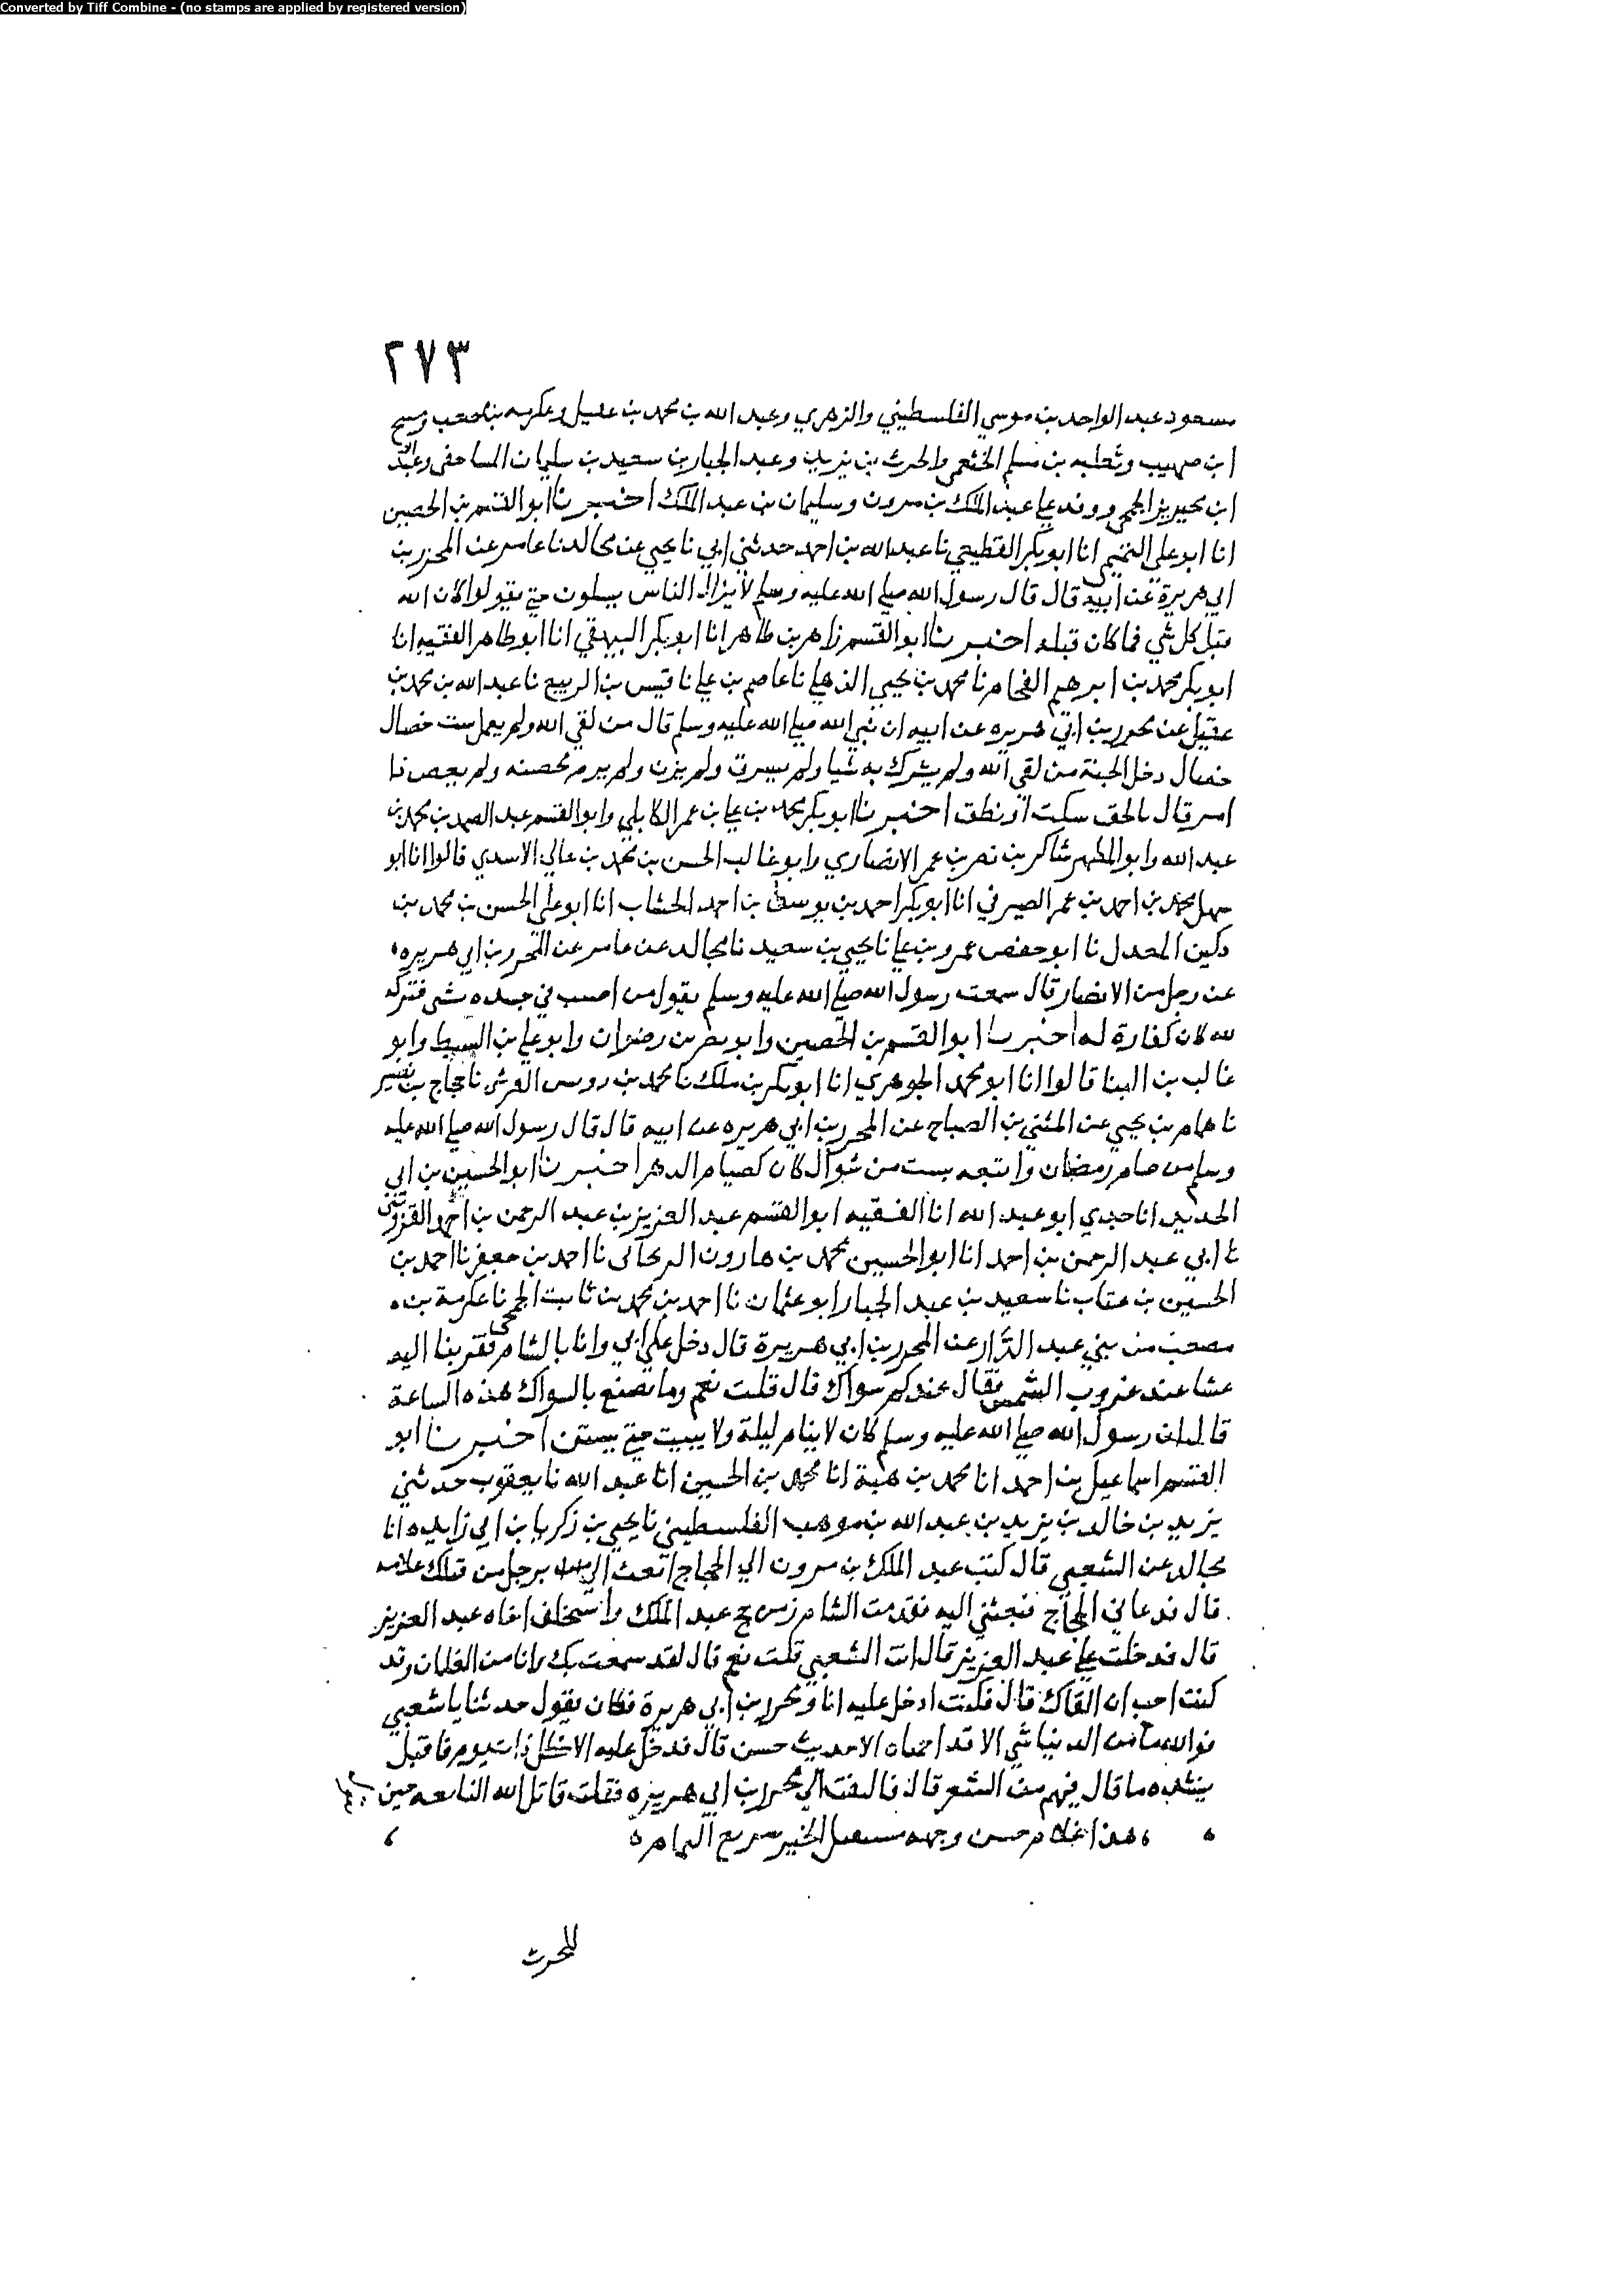 Converted by Tiff Combine - (no stamps are applied by registered version)
٢٧٣
مسعود عبد الواحد بن موسي الفلسطيني والزهري وعبد الله بن محمد بن عقيل وعكرمه بن مصعب ومسيح
ابن صهيب وثعلبه بن مسلم الخثعمي والحرث بن يزيد وعبد الجبار بن سعيد بن سليمان المساحقي وعبد الله
ابن محيريز الجمحي ووفد علي عبد الملك بن مرون وسليمان بن عبد الملك اخبرنا ابو القسم بن الحصين
انا ابو علي التميمي انا ابو بكر القطيعي نا عبد الله بن احمد حدثني ابي نا يحيي عن مجالد نا عامر عن المحرر بن
ابي هريرة عن ابيه قال قال رسول الله صلي الله عليه وسلم لا يزال الناس يسلون حتي يقولوا كان الله
قبل كل شي فما كان قبله اخبرنا ابو القسم زاهر بن طاهر انا ابو بكر البيهقي انا ابو طاهر الفقيه انا
ابو بكر محمد بن ابرهيم الفحام نا محمد بن يحيي الذهلي نا عاصم بن علي نا قيس بن الربيع نا عبد الله بن محمد بن
عقيل عن محرر بن ابي هريره عن ابيه ان نبي الله صلي الله عليه وسلم قال من لقي الله ولم يعمل ست خصال
خصال دخل الجنة من لقي الله ولم يشرك به شيا ولم يسرق ولم يزن ولم يرم محصنه ولم يعص ذا
امر قال بالحق سكت او نطق اخبرنا ابو بكر محمد بن علي بن عمر الكابلي وابو القسم عبد الصمد بن محمد بن
عبد الله وابو المطهر شاكر بن نصر بن عمر الانصاري وابو غالب الحسن بن محمد بن عالي الاسدي قالوا انا ابو
سهل محمد بن احمد بن عمر الصيرفي انا ابو بكر احمد بن يوسف بن احمد الخشاب انا ابو علي الحسن بن محمد بن
دكين المعدل نا ابو حفص عمرو بن علي نا يحيي بن سعيد نا مجالد عن عامر عن المحرر بن ابي هريره
عن رجل من الانصار قال سمعت رسول الله صلي الله عليه وسلم يقول من اصيب في جسده بشي فتركه
لله كان كفارة له اخبرنا ابو القسم بن الحصين وابو نصر بن رضوان وابو علي بن السبط وابو
غالب بن البنا قالوا انا ابو محمد الجوهري انا ابو بكر بن ملك نا محمد بن يونس القرشي نا حجاج بن نصير
نا همام بن يحيي عن المثني بن الصباح عن المحرر بن ابي هريره عن ابيه قال قال رسول الله صلي الله عليه
وسلم من صام رمضان واتبعه بست من شوال كان كصيام الدهر اخبرنا ابو الحسين بن ابي
الحديد انا جدي ابو عبد الله انا الفقيه ابو القسم عبد العزيز بن عبد الرحمن بن احمد القزويني
نا ابي عبد الرحمن بن احمد انا ابو الحسين محمد بن هارون الزنجاني نا احمد بن جعفر نا احمد بن
الحسين بن عتاب نا سعيد بن عبد الجبار ابو عثمان نا احمد بن محمد بن ثابت الجمحي نا عكرمة بن
مصعب من بني عبد الدار عن المحرر بن ابي هريرة قال دخل علي ابي وانا بالشام فقربنا اليه
عشا عند غروب الشمس فقال عندكم سواك قال قلت نعم وما تصنع بالسواك هذه الساعة
قال ان رسول الله صلي الله عليه وسلم كان لا ينام ليلة ولا يبيت حتي يستن اخبرنا ابو
القسم اسماعيل بن احمد انا محمد بن هبة انا محمد بن الحسين انا عبد الله نا يعقوب حدثني
يزيد بن خالد بن يزيد بن عبد الله بن موهب الفلسطيني نا يحيي بن زكريا بن ابي زايده انا
مجالد عن الشعبي قال كتب عبد الملك بن مرون الي الحجاج ابعث الي برجل من قبلك علامه
قال فدعاني الحجاج فبعثني اليه فقدمت الشام زمن حج عبد الملك واستخلف اخاه عبد العزيز
قال فدخلت علي عبد العزيز قال انت الشعبي قلت نعم قال لقد سمعت بك وانا من الغلمان وقد
كنت احب ان القاك قال فكنت ادخل عليه انا ومحرر بن ابي هريرة فكان يقول حدثنا يا شعبي
فوالله ما من الدنيا شي الا قد اصبناه الا حديث حسن قال فدخل عليه الاخطل ذات يوم فاقبل
ينشده ما قال فيهم من الشعر قال فالتفت الي محرر بن ابي هريره فقلت قاتل الله النابغه حين
هذا غلام حسن وجهه مستقبل الخير سريع التمام
للحرث